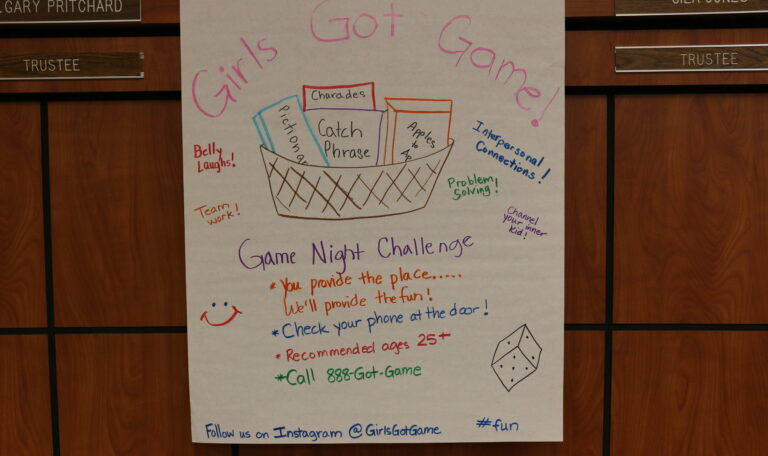 GARY PRITCHARD
TRUSTEE
TRUSTEE
Girls Got Game!
Charades
Pictionar
Catch
Phrase
Apples
to
Ap
Belly
Laughs!
Interpersonal
Connections!
Team
work!
Problem
Solving!
Channel
your inner
Kid!
Game Night Challenge
*You provide the place.....
We'll provide the fun!
*Check your phone at the door!
*Recommended ages 25+
*Call 888-Got-Game
Follow us on Instagram @GirlsGotGame
#fun